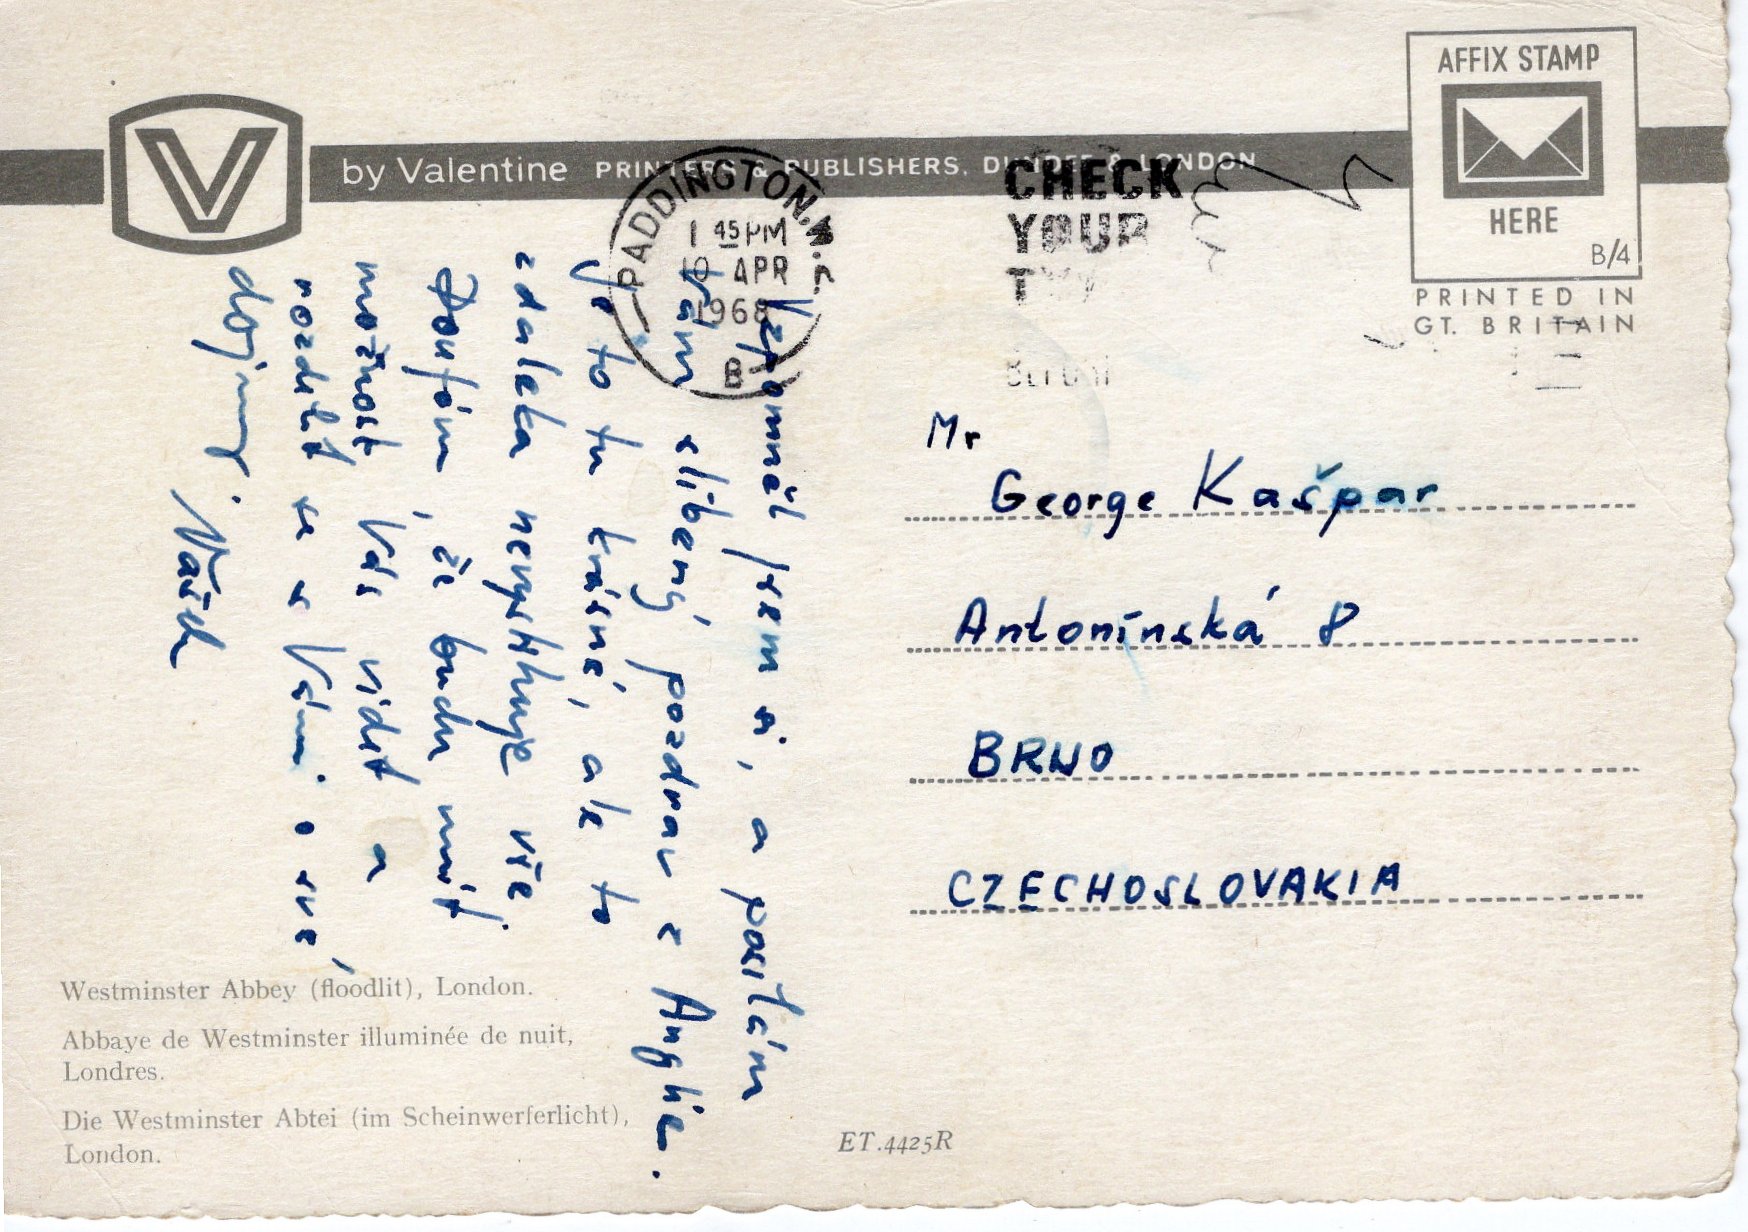 V
by Valentine PRINTERS & PUBLISHERS, DUNDEE & LONDON
AFFIX STAMP
HERE
B/4
PRINTED IN
GT. BRITAIN
PADDINGTON.W.2.
1 45 PM
10 APR
1968
B
CHECK
YOUR
Vzpomněl jsem si, a posílám
Vám slíbený pozdrav z Anglie.
Je to tu krásné, ale to
zdaleka nevystihuje vše.
Doufám, že budu mít
možnost Vás vidět a
rozdělit se s Vámi o své
dojmy. Vašek
Mr
George Kašpar
Antonínská 8
BRNO
CZECHOSLOVAKIA
Westminster Abbey (floodlit), London.
Abbaye de Westminster illuminée de nuit,
Londres.
Die Westminster Abtei (im Scheinwerferlicht),
London.
ET.4425R